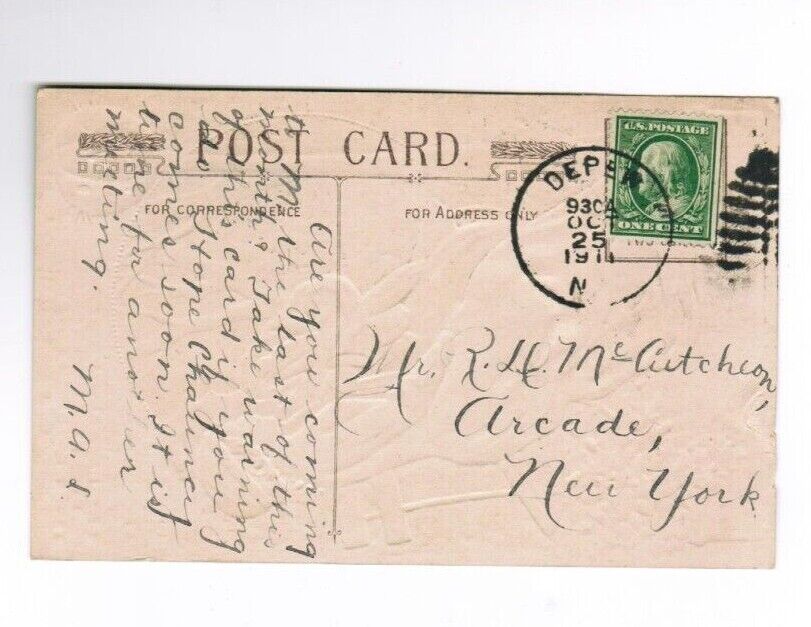 POST CARD.
FOR CORRESPONDENCE
FOR ADDRESS ONLY
U.S. POSTAGE
ONE CENT
DEPEW
930A
OCT
25
1911
N
Are you coming
to M the last of this
month? Take warning
of this card if you
do. Hope Chauncey
comes soon. It is
time for another
meeting.
M. A. S.
Mr. R. H. McCutcheon,
Arcade,
New York